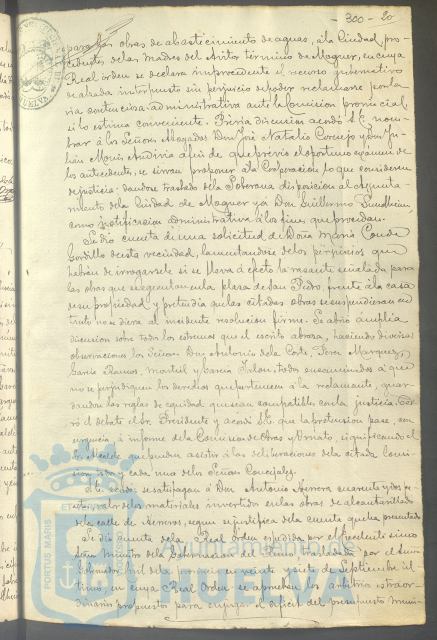 300 - 20
para las obras de abastecimiento de aguas, á la Ciudad, pro-
cedentes de las Madres del Avitor término de Moguer, en cuya
Real orden se declara improcedente el recurso gubernativo
de alzada interpuesto sin perjuicio de poder reclamarse por la
via contencioso-administrativa ante la Comision provincial,
si lo estima conveniente. Prévia discusion acordó S. E. nom-
brar á los Señores Abogados Don José Natalio Cornejo y Don Ju-
lian Audivia á fin de que prévio el oportuno exámen de
los antecedentes, se sirvan proponer á la Corporacion lo que consideren
de justicia: dándose traslado de la Soberana disposicion al Ayunta-
miento de la Ciudad de Moguer y á Don Guillermo Sundheim
como notificacion administrativa á los fines que procedan.
Se dió cuenta de una solicitud de Doña María Conde
Gordillo de esta vecindad, lamentándose de los perjuicios que
habian de irrogársele si se lleva á efecto la rasante señalada para
las obras que se ejecutan en la plaza de San Pedro, frente á la casa
de su propiedad y pretendia que las citadas obras se suspendieran en
tanto no se diera al incidente resolucion firme. Se abrió ámplia
discusion sobre todos los extremos que el escrito abraza, haciendo diversas
observaciones los Señores Don Antonio de la Corte, Perez Marquez,
Garcia Ramos, y Garcia todos encaminados á que
no se perjudiquen los derechos que pertenecen á la reclamante, guar-
dando las reglas de equidad que sean compatibles con la justicia. Cer-
ró el debate el Sr. Presidente y acordó S. E. que la pretension pase, con
urgencia á informe de la Comision de Obras y Ornato, significando el
Sr. Alcalde que pueden asistir á las deliberaciones de la citada Comi-
sion todos y cada uno de los Señores Concejales.
S. E. acordó se satisfagan á Don Antonio Herrera cuarenta y dos pe-
setas valor de los materiales invertidos en las obras de alcantarillado
de la calle de Herreros, segun se justifica de la cuenta que ha presentado.
Se dió cuenta de la Real orden espedida por el Excelentísimo
Señor Ministro de la Gobernacion del Reino, trasladada por el Señor
Gobernador Civil de la provincia en veinte y siete de Septiembre úl-
timo, en cuya Real Orden se aprueban los arbitrios estraor-
dinarios propuestos para enjugar el déficit del presupuesto muni-
PORTUS MARIS
Ayuntamiento de
HUELVA